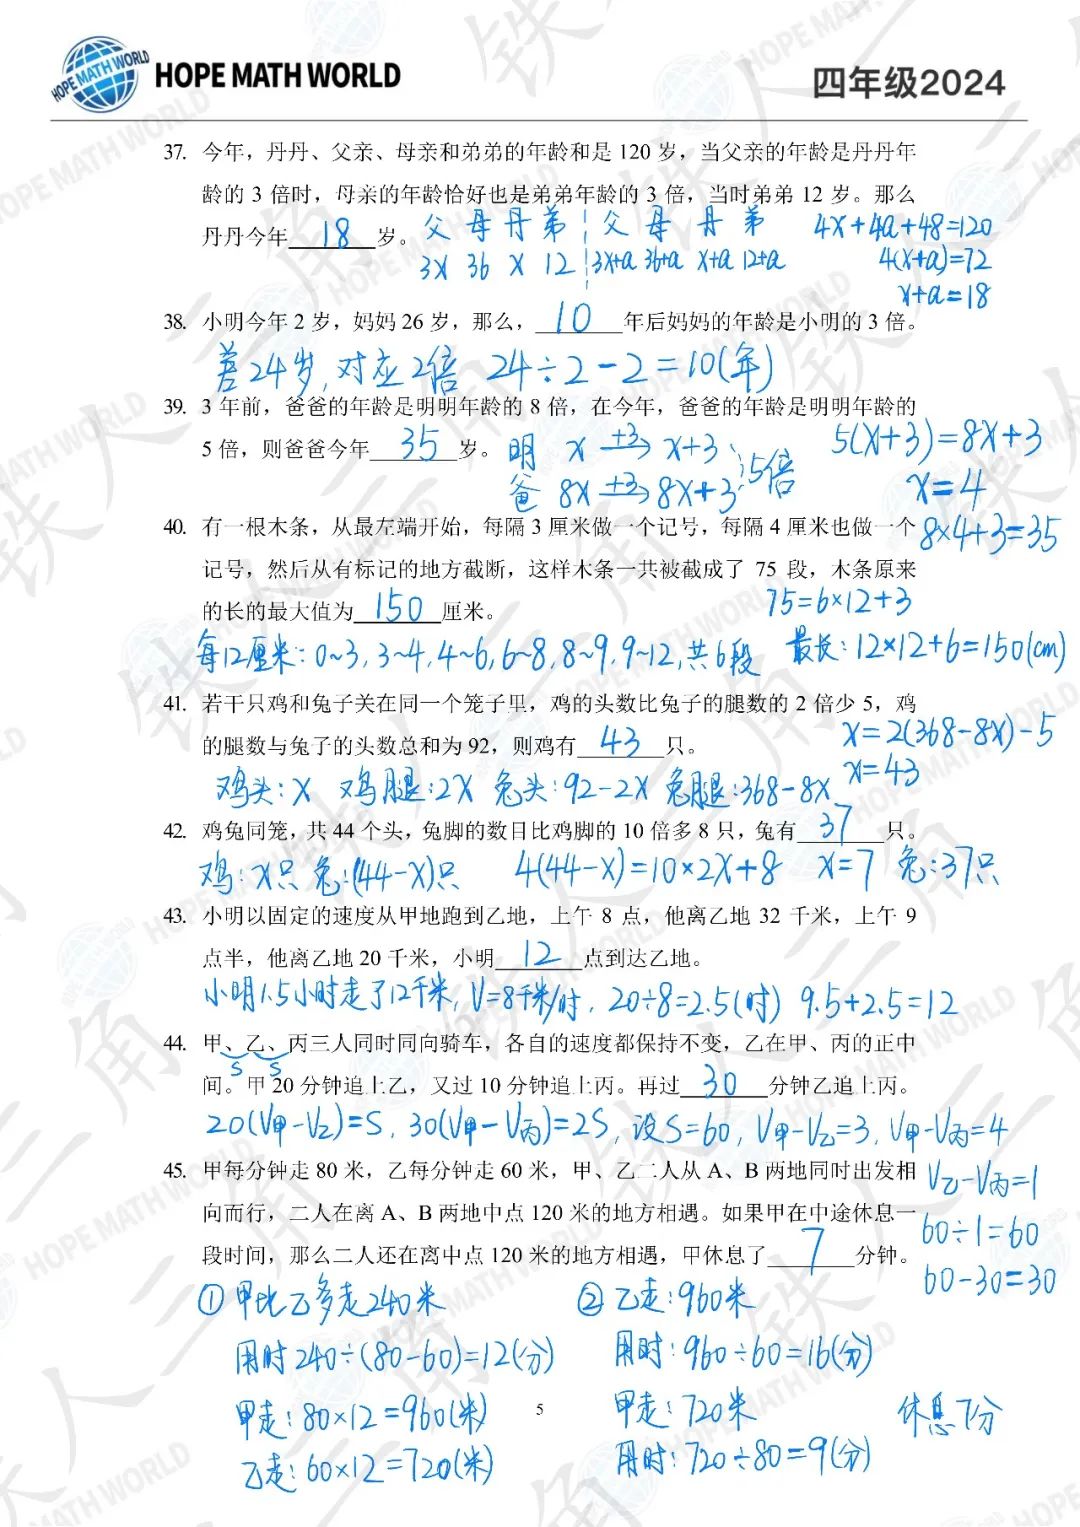 HOPE MATH WORLD
四年级2024
37. 今年，丹丹、父亲、母亲和弟弟的年龄和是 120 岁，当父亲的年龄是丹丹年
龄的 3 倍时，母亲的年龄恰好也是弟弟年龄的 3 倍，当时弟弟 12 岁。那么
丹丹今年 18 岁。
父 母 丹 弟 父 母 丹 弟
3x 36 x 12 3x+a 36+a x+a 12+a
4x+4a+48=120
4(x+a)=72
x+a=18
38. 小明今年 2 岁，妈妈 26 岁，那么， 10 年后妈妈的年龄是小明的 3 倍。
差24岁,对应2倍 24÷2-2=10(年)
39. 3 年前，爸爸的年龄是明明年龄的 8 倍，在今年，爸爸的年龄是明明年龄的
5 倍，则爸爸今年 35 岁。
明 x +3→ x+3
爸 8x +3→ 8x+3 5倍
5(x+3)=8x+3
x=4
8×4+3=35
40. 有一根木条，从最左端开始，每隔 3 厘米做一个记号，每隔 4 厘米也做一个
记号，然后从有标记的地方截断，这样木条一共被截成了 75 段，木条原来
的长的最大值为 150 厘米。
75=6×12+3
每12厘米：0~3,3~4,4~6,6~8,8~9,9~12,共6段 最长：12×12+6=150(cm)
41. 若干只鸡和兔子关在同一个笼子里，鸡的头数比兔子的腿数的 2 倍少 5，鸡
的腿数与兔子的头数总和为 92，则鸡有 43 只。
x=2(368-8x)-5
x=43
鸡头：x 鸡腿：2x 兔头：92-2x 兔腿：368-8x
42. 鸡兔同笼，共 44 个头，兔脚的数目比鸡脚的 10 倍多 8 只，兔有 37 只。
鸡：x只 兔：(44-x)只 4(44-x)=10×2x+8 x=7 兔：37只
43. 小明以固定的速度从甲地跑到乙地，上午 8 点，他离乙地 32 千米，上午 9
点半，他离乙地 20 千米，小明 12 点到达乙地。
小明1.5小时走了12千米, V=8千米/时, 20÷8=2.5(时) 9.5+2.5=12
44. 甲、乙、丙三人同时同向骑车，各自的速度都保持不变，乙在甲、丙的正中
S S
间。甲 20 分钟追上乙，又过 10 分钟追上丙。再过 30 分钟乙追上丙。
20(V甲-V乙)=S, 30(V甲-V丙)=2S, 设S=60, V甲-V乙=3, V甲-V丙=4
V乙-V丙=1
60÷1=60
60-30=30
45. 甲每分钟走 80 米，乙每分钟走 60 米，甲、乙二人从 A、B 两地同时出发相
向而行，二人在离 A、B 两地中点 120 米的地方相遇。如果甲在中途休息一
段时间，那么二人还在离中点 120 米的地方相遇，甲休息了 7 分钟。
① 甲比乙多走240米
用时240÷(80-60)=12(分)
甲走：80×12=960(米)
乙走：60×12=720(米)
② 乙走：960米
用时：960÷60=16(分)
甲走：720米
用时：720÷80=9(分)
休息7分
5